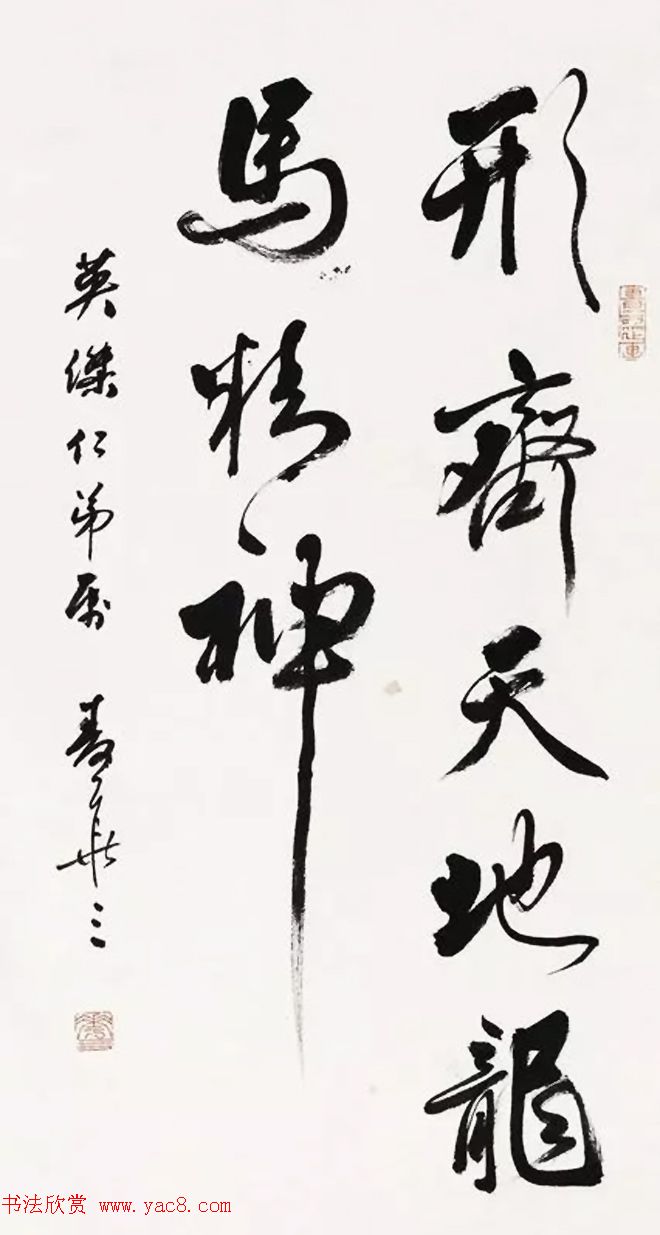 形齊天地龍
馬精神
英傑仁弟属
书法欣赏 www.yac8.com